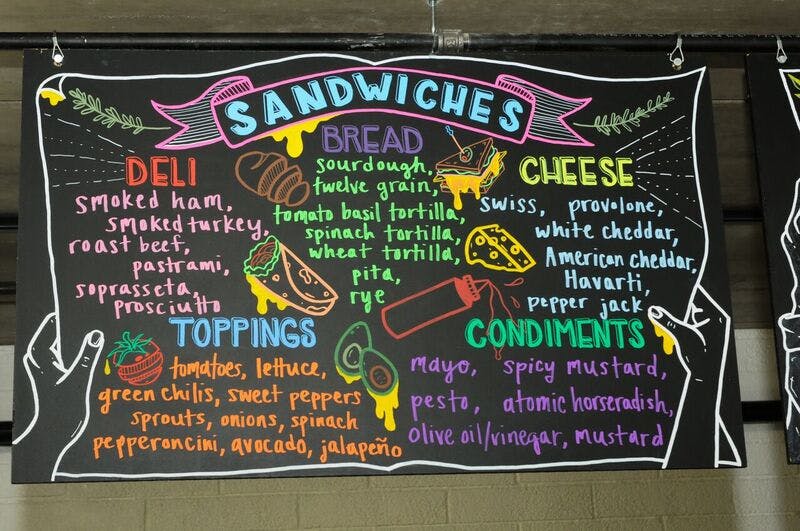 SANDWICHES
DELI
smoked ham,
smoked turkey,
roast beef,
pastrami,
soprasseta,
prosciutto
BREAD
sourdough,
twelve grain,
tomato basil tortilla,
spinach tortilla,
wheat tortilla,
pita,
rye
CHEESE
swiss, provolone,
white cheddar,
American cheddar,
Havarti,
pepper jack
TOPPINGS
tomatoes, lettuce,
green chilis, sweet peppers
sprouts, onions, spinach
pepperoncini, avocado, jalapeño
CONDIMENTS
mayo, spicy mustard,
pesto, atomic horseradish,
olive oil/vinegar, mustard